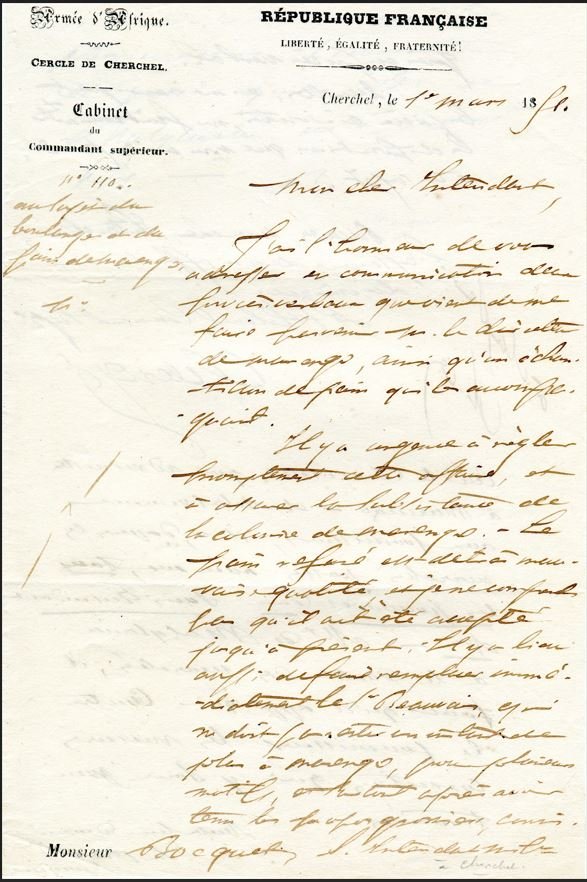 Armée d'Afrique.
CERCLE DE CHERCHEL.
Cabinet
du
Commandant supérieur.
RÉPUBLIQUE FRANÇAISE
LIBERTÉ, ÉGALITÉ, FRATERNITÉ!
Cherchel, le 1er mars 1851.
n° 110.
au sujet du
boulanger et du
pain de marengo,
Mon cher Intendant,
J'ai l'honneur de vous
adresser en communication deux
procès verbaux que vient de me
faire parvenir mr. le directeur
de marengo, ainsi qu'un échan-
tillon de pain qui les accompa-
-gnait.
Il y a urgence à règler
promptement cette affaire, et
à assurer la subsistance de
la colonie de marengo. - Le
pain refusé est de très mau-
vaise qualité et je ne comprends
pas qu'il ait été accepté
jusqu'à présent. Il y a lieu
aussi de faire remplacer immé-
-diatement le Sr. Beauvais, qui
ne doit pas rester un instant de
plus à marengo, pour plusieurs
motifs, et surtout après avoir
tenu les propos grossiers,
Monsieur Bocquet, S. Intendant mil.re
à Cherchel.